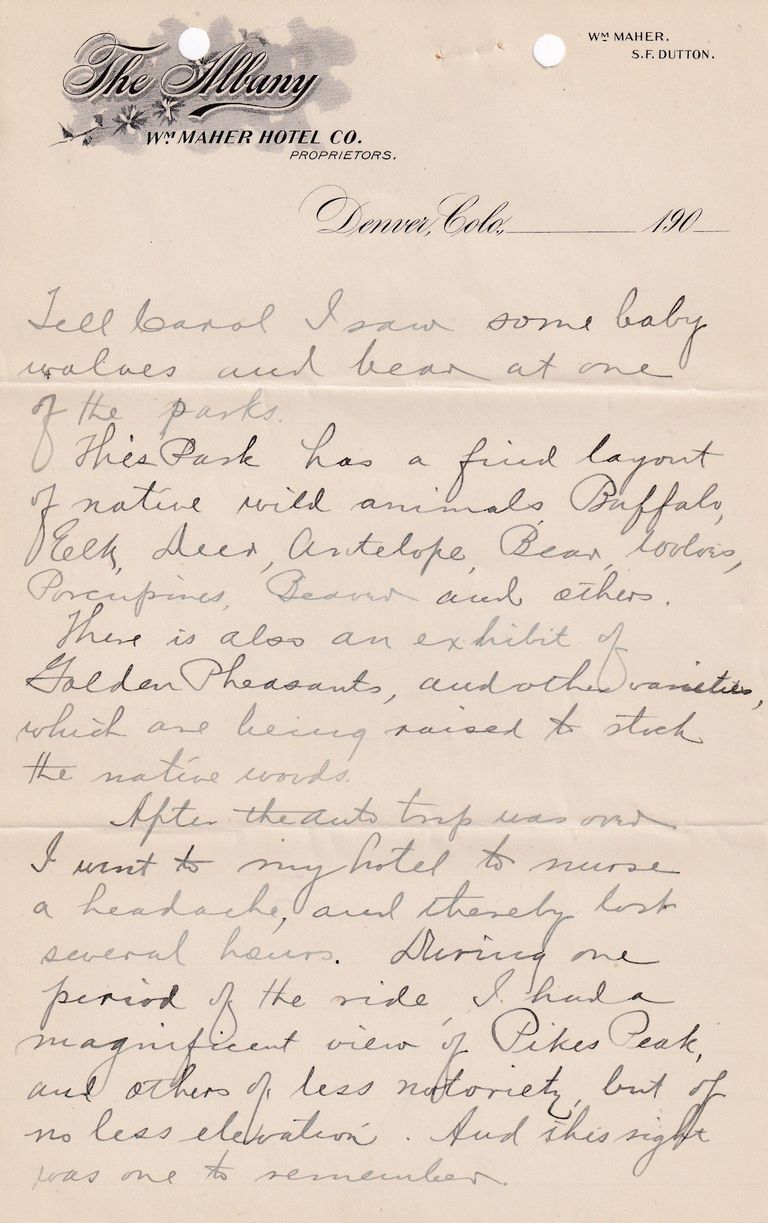 The Albany
WM MAHER HOTEL CO.
PROPRIETORS.
WM MAHER.
S.F. DUTTON.
Denver, Colo., 190
Tell Carol I saw some baby
wolves and bear at one
of the parks.
This Park has a fine layout
of native wild animals, Buffalo,
Eelk, Deer, Antelope, Bear, wolves,
Porcupines, Beaver and others.
There is also an exhibit of
Golden Pheasants, and other varieties,
which are being raised to stock
the native woods.
After the auto trip was over
I went to my hotel to nurse
a headache, and thereby lost
several hours. During one
period of the ride, I had a
magnificent view of Pikes Peak,
and others of less notoriety, but of
no less elevation. And this sight
was one to remember.